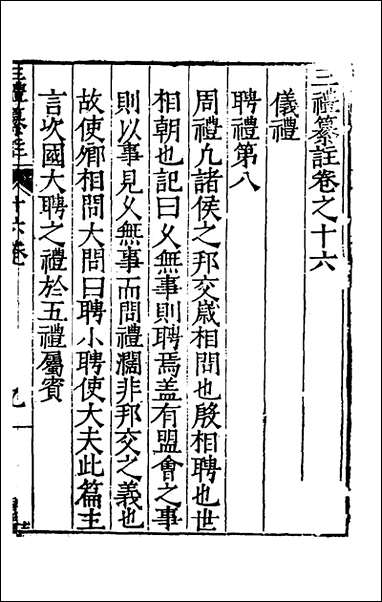 三禮纂註卷之十六
儀禮
聘禮第八
周禮凡諸侯之邦交歲相問也殷相聘也世
相朝也記曰久無事則聘焉盖有盟會之事
則以事見久無事而問禮濶非邦交之義也
故使卿相問大問曰聘小聘使大夫此篇主
言次國大聘之禮於五禮屬賓
三禮纂註 十六卷 九